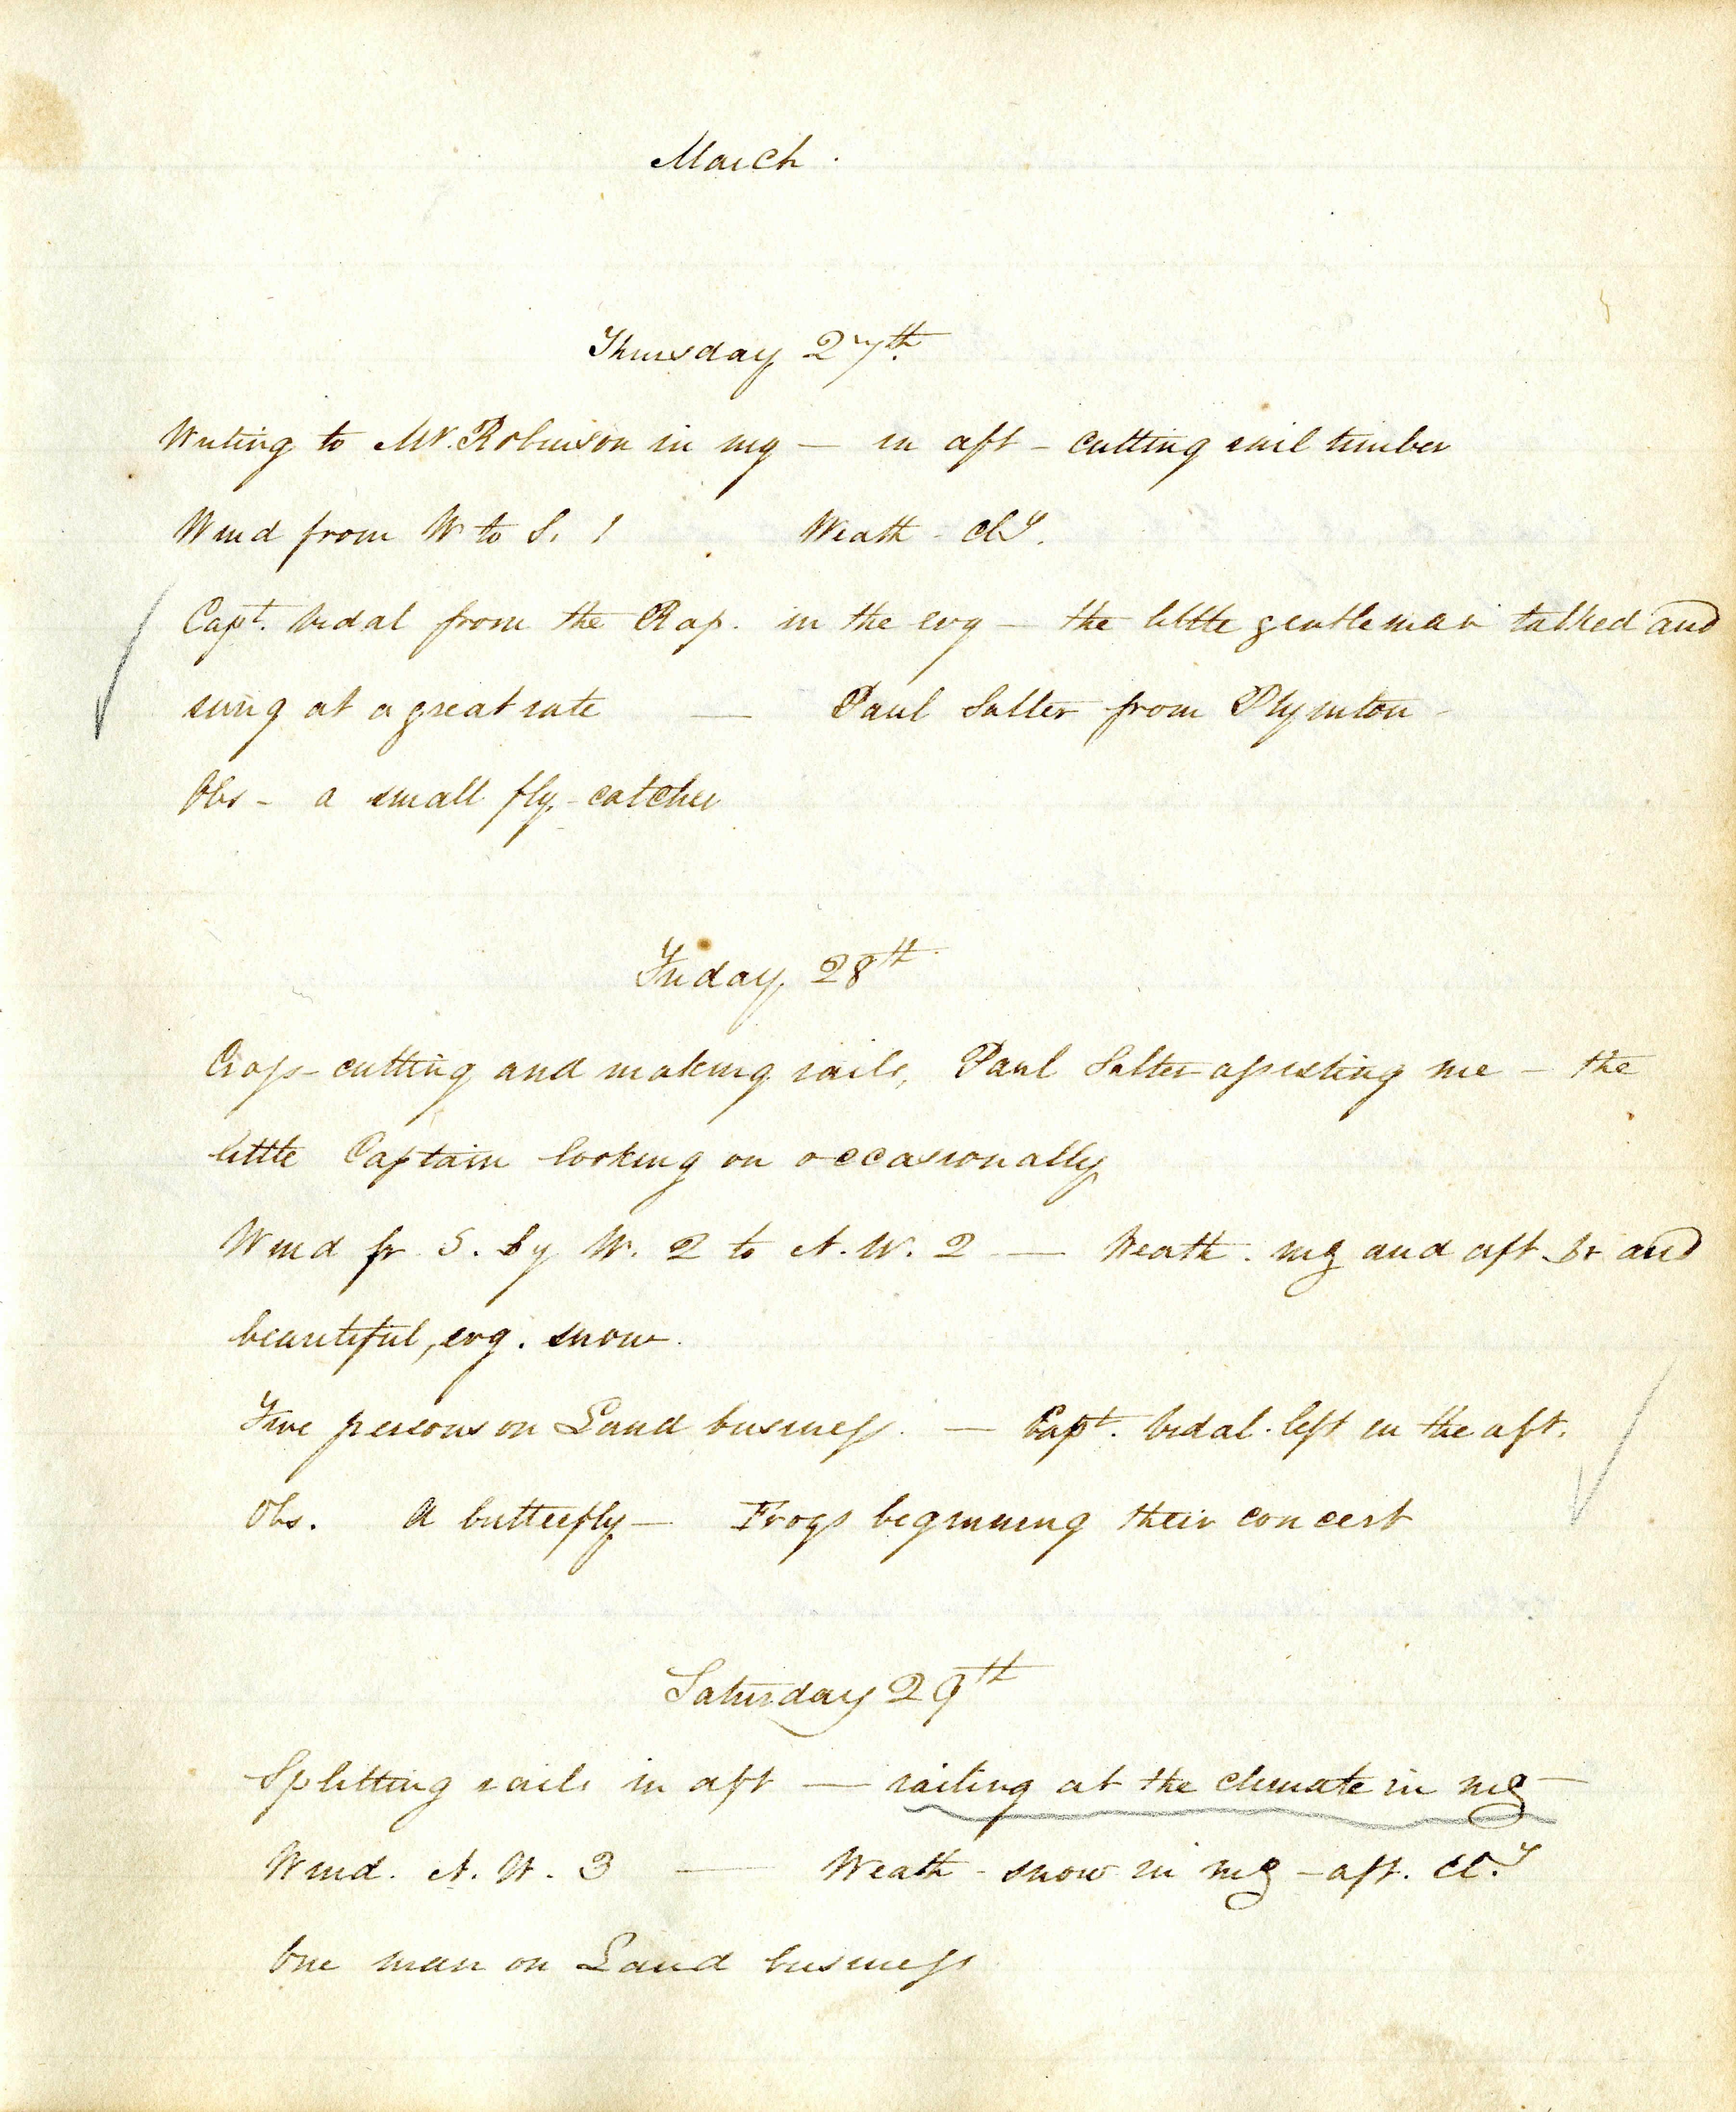 March.
Thursday 27th
Writing to Mr. Robinson in mg — in aft - cutting rail timber
Wind from W to S. 1 Weath - cly.
Capt. Vidal from the Rap. in the evg — the little gentleman talked and
sung at a great rate — Paul Salter from Plymton -
Obs - a small fly-catcher
Friday 28th
Cross-cutting and making rails, Paul Salter assisting me — the
little Captain looking on occasionally
Wind fr S. by W. 2 to N.W. 2 — Weath. mg and aft. br and
beautiful, evg. snow.
Five persons on Land business. — Capt. Vidal left in the aft.
Obs. A butterfly — Frogs beginning their concert
Saturday 29th
Splitting rails in aft — railing at the climate in mg —
Wind. N.W. 3 — Weath - snow in mg — aft. cl.y
One man on Land business